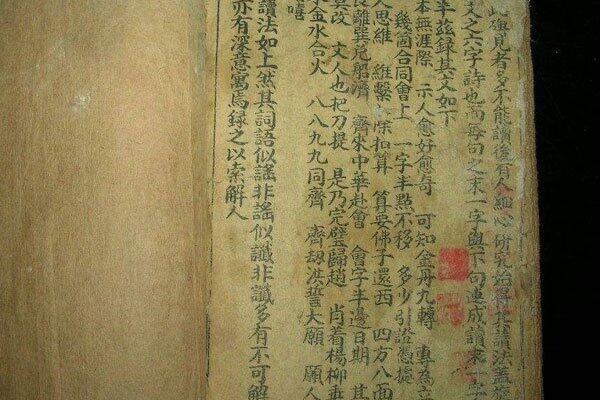 此碑見者多不能讀後有人細心研究始得其讀法蓋
文之六字詩也而每句之末一字與下句連成讀末一字
半茲錄其文如下
本無涯際 示人愈好愈奇 可知金丹九轉 專為立
幾箇合同會上 一字半點不移 多少引證憑據
人思維 維繫 除扣算 算要佛子還西 四方八面
良離巽兌船濟 齊來中華赴會 會字半邊日期 其
真改 文人也把刀提 是乃完璧歸趙 肖着楊柳垂
金水合火 八八九九同齊 齊劫洪誓大願 願人
嘻
讀法如上然其詞語似謠非謠似讖非讖多有不可解
亦有深意寓焉錄之以索解人